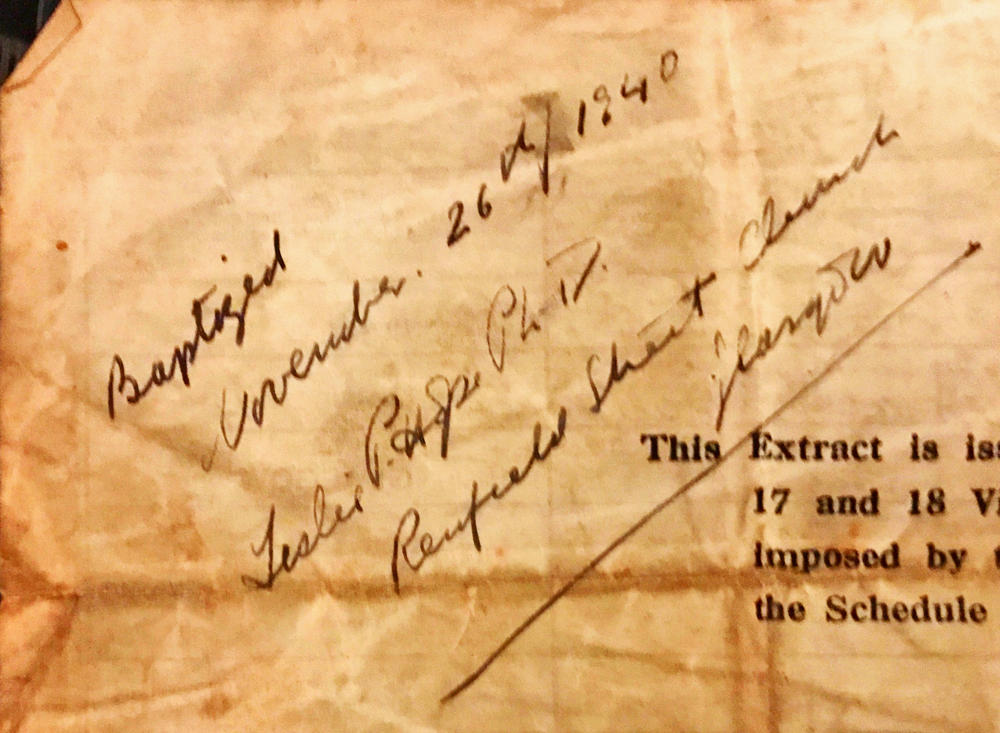 Baptized
November. 26th, 1940
Leslie P. Hope. Ph. D.
Renfield Street Church
Glasgow
This Extract is is
17 and 18 V
imposed by
the Schedule